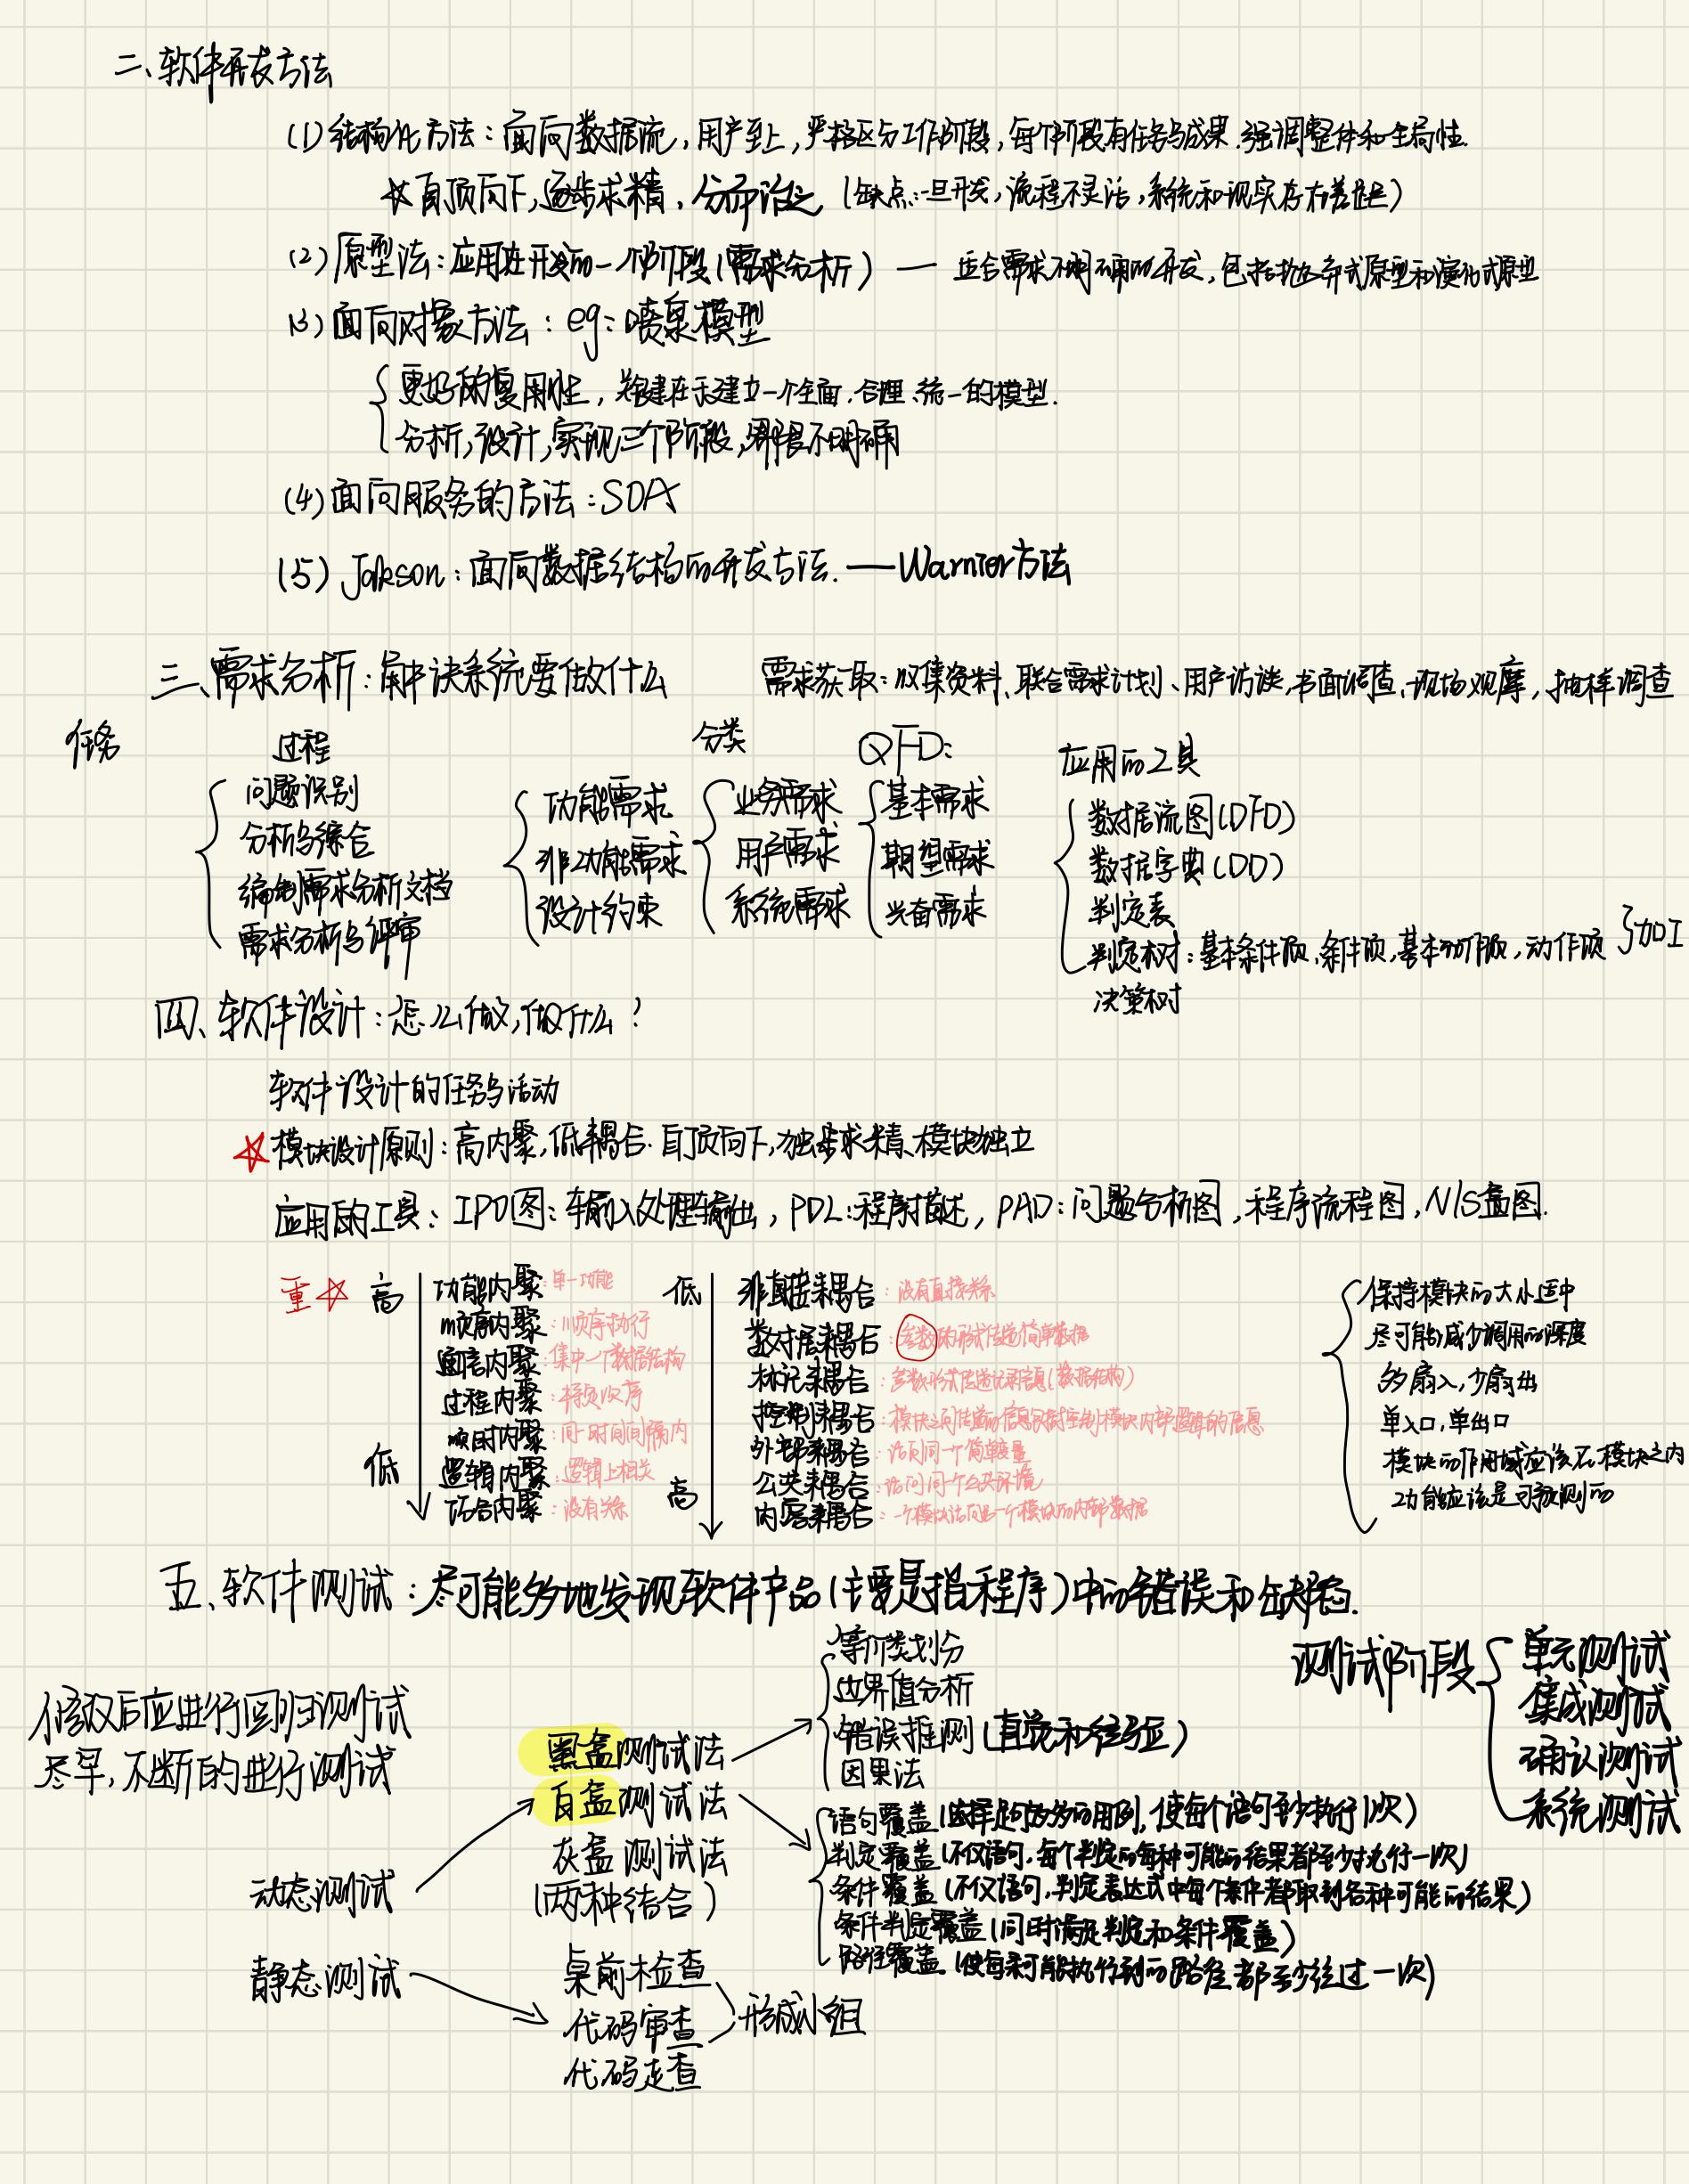 二、软件开发方法
(1)结构化方法：面向数据流，用户至上，严格区分工作阶段，每个阶段有任务与成果.强调整体和全局性.
☆自顶向下，逐步求精，分而治之 (缺点：一旦开发，流程不灵活，系统和现实存有差距)
(2)原型法：应用在开发的一个阶段(需求分析) — 适合需求不明确的开发，包括抛弃式原型和演化式原型
(3)面向对象方法：eg：喷泉模型
更好的复用性，关键在于建立一个全面.合理.统一的模型.
分析，设计，实现三个阶段，界限不明确
(4)面向服务的方法：SOA
(5) Jakson：面向数据结构的开发方法. — Warnier方法
三、需求分析：集中决系统要做什么
需求获取：收集资料、联合需求计划、用户访谈，书面调查、现场观摩，抽样调查
任务
过程
问题识别
分析与综合
编制需求分析文档
需求分析与评审
功能需求
非功能需求
设计约束
分类
业务需求
用户需求
系统需求
QFD：
基本需求
期望需求
兴奋需求
应用的工具
数据流图(DFD)
数据字典(DD)
判定表
判定树：基本条件项、条件项，基本动作项，动作项 }加工
决策树
四、软件设计：怎么做，做什么？
软件设计的任务与活动
☆模块设计原则：高内聚，低耦合.自顶向下，独步求精、模块独立
应用的工具：IPO图：输入处理输出，PDL：程序描述，PAD：问题分析图，程序流程图，N/S盒图.
重☆
高
功能内聚：单一功能
顺序内聚：顺序执行
通信内聚：集中一个数据结构
过程内聚：特定次序
瞬时内聚：同一时间间隔内
逻辑内聚：逻辑上相关
低
偶合内聚：没有关系
低
非直接耦合：没有直接关系
数据耦合：参数的形式传递简单数据
标记耦合：参数形式传递记录信息(数据结构)
控制耦合：模块之间传递的信息包括控制模块内部逻辑的信息
外部耦合：访问同一个简单变量
公共耦合：访问同个公共环境
高
内容耦合：一个模块访问另一个模块的内部数据
保持模块的大小适中
尽可能减少调用的深度
多扇入，少扇出
单入口，单出口
模块的作用域应该在模块之内
功能应该是可预测的
五、软件测试：尽可能多地发现软件产品(主要是指程序)中的错误和缺陷.
修改后应进行回归测试
尽早，不断的进行测试
动态测试
黑盒测试法
白盒测试法
灰盒测试法
(两种结合)
等价类划分
边界值分析
错误推测(直觉和经验)
因果法
语句覆盖(选择足够多的用例，使每个语句至少执行1次)
判定覆盖(不仅语句，每个判定的每种可能的结果都至少执行一次)
条件覆盖(不仅语句，判定表达式中每个条件都取到各种可能的结果)
条件判定覆盖(同时满足判定和条件覆盖)
路径覆盖(使每条可能执行到的路径都至少经过一次)
测试阶段
单元测试
集成测试
确认测试
系统测试
静态测试
桌前检查
代码审查
代码走查
形成小组